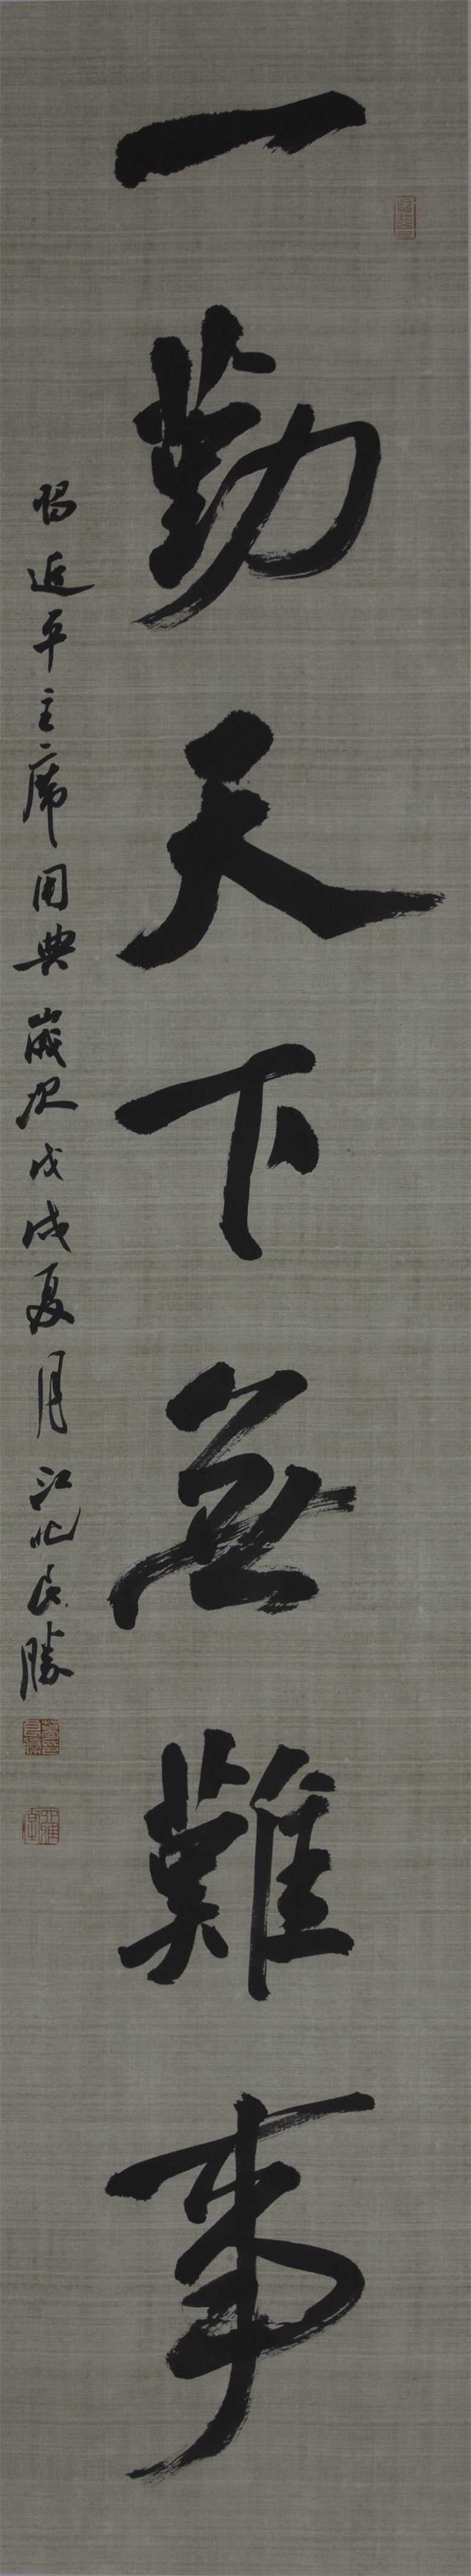 一勤天下無難事
習近平主席用典歲次戊戌夏月江北良勝